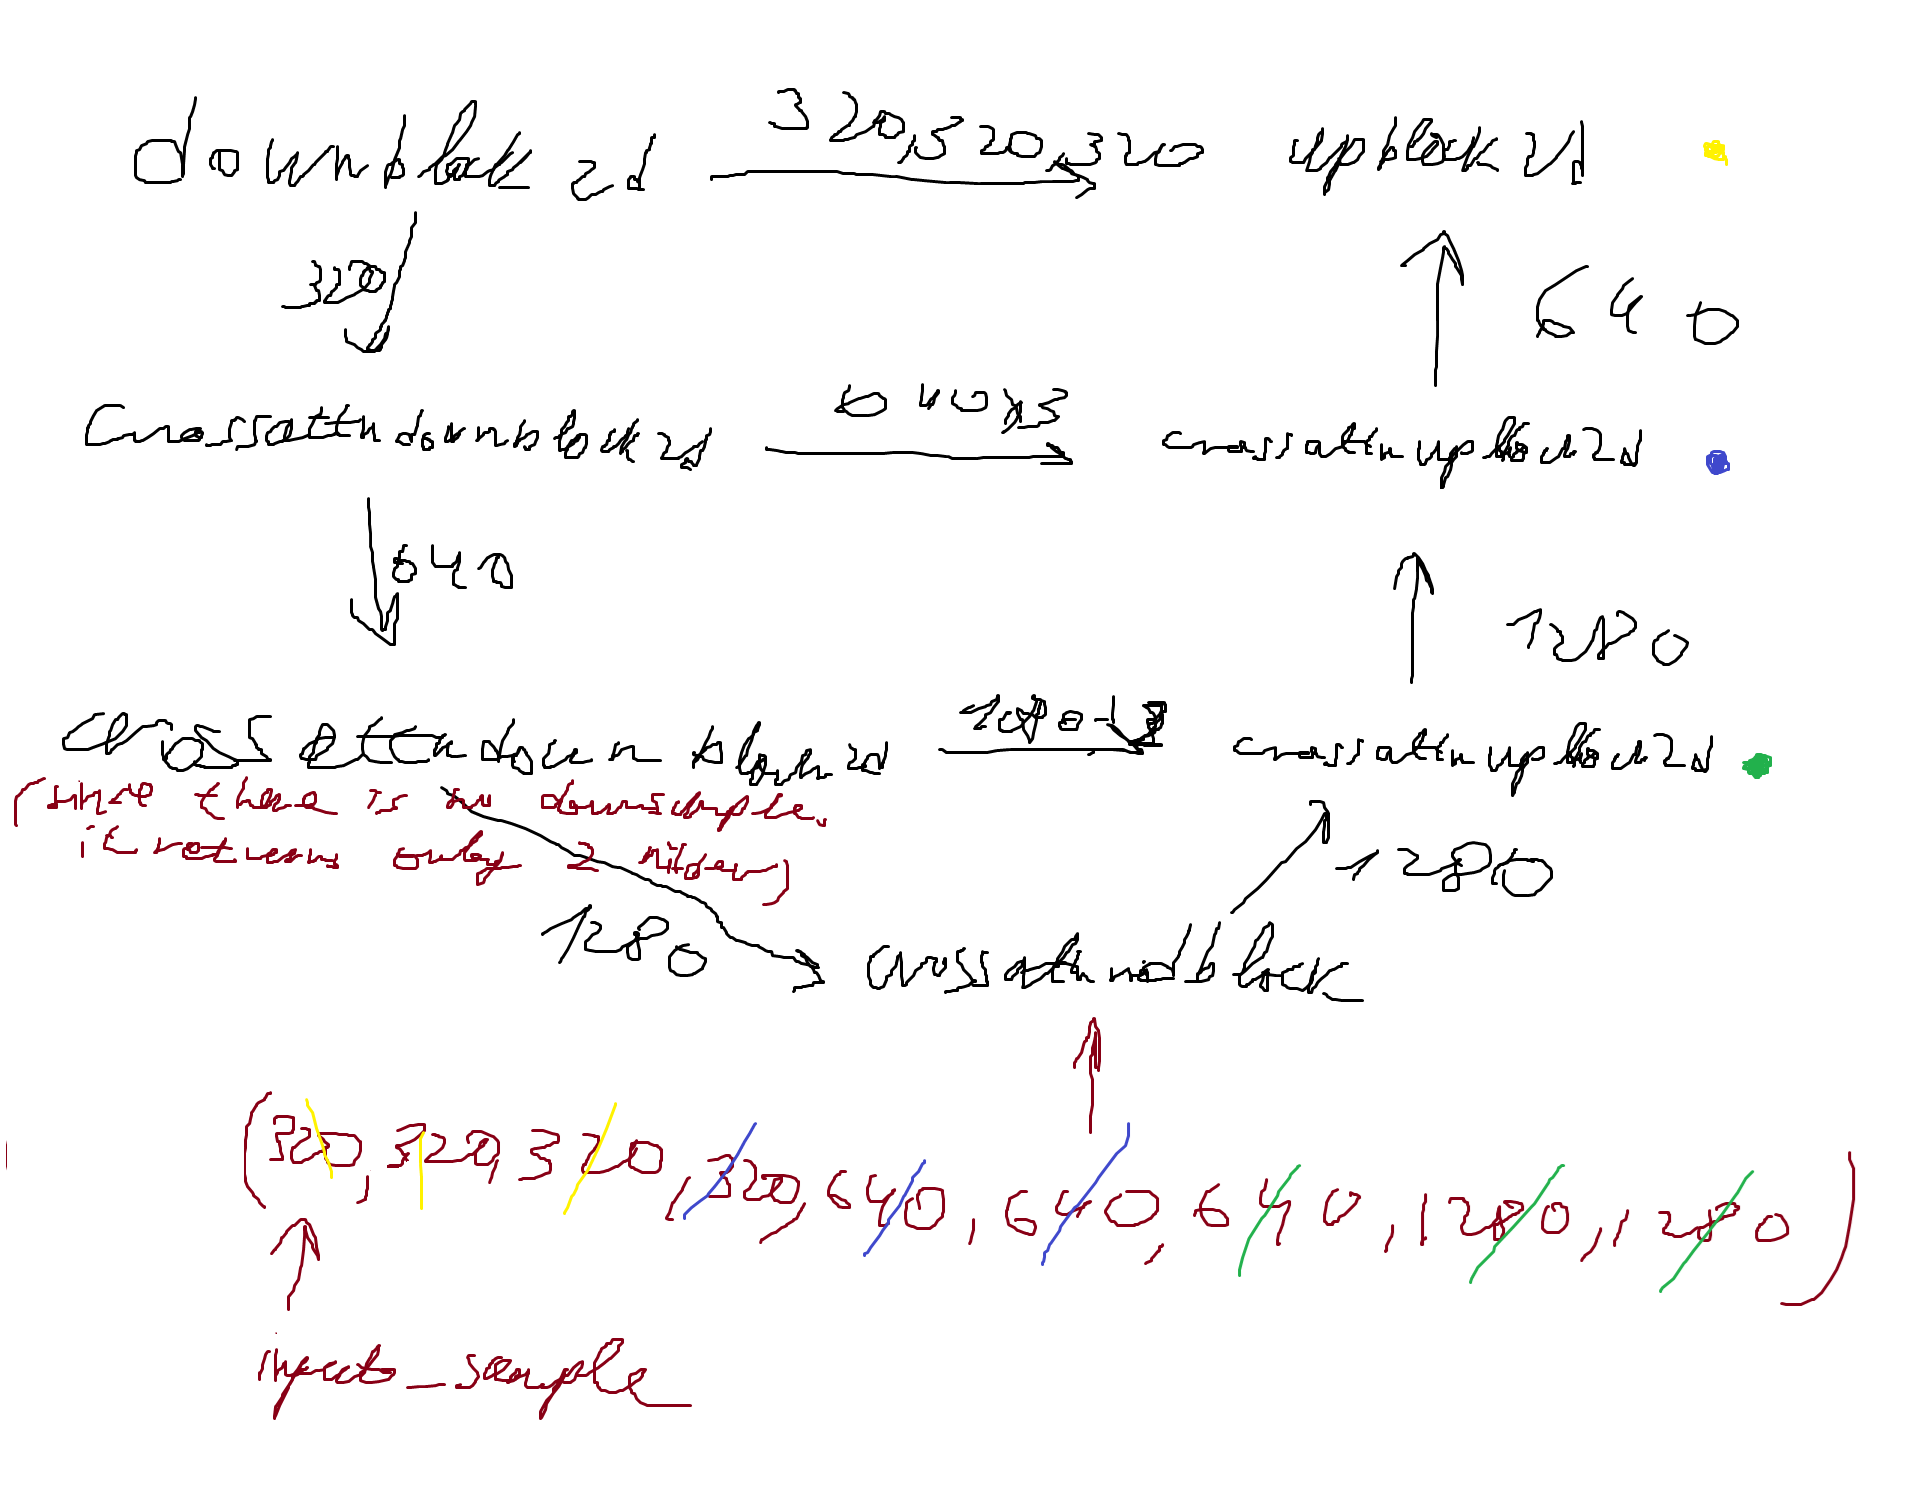 downblock 2d 320,320,320 upblock 2d
320 640
Crossattndownblock2d 640x3 crossattnupblock2d
640 1280
crossattndownblock2d crossattnupblock2d
(since there is no downsample,
it returns only 2 hidden)
1280 1280
crossattnmidblock
(320, 320, 320, 320, 640, 640, 640, 1280, 1280)
input_sample